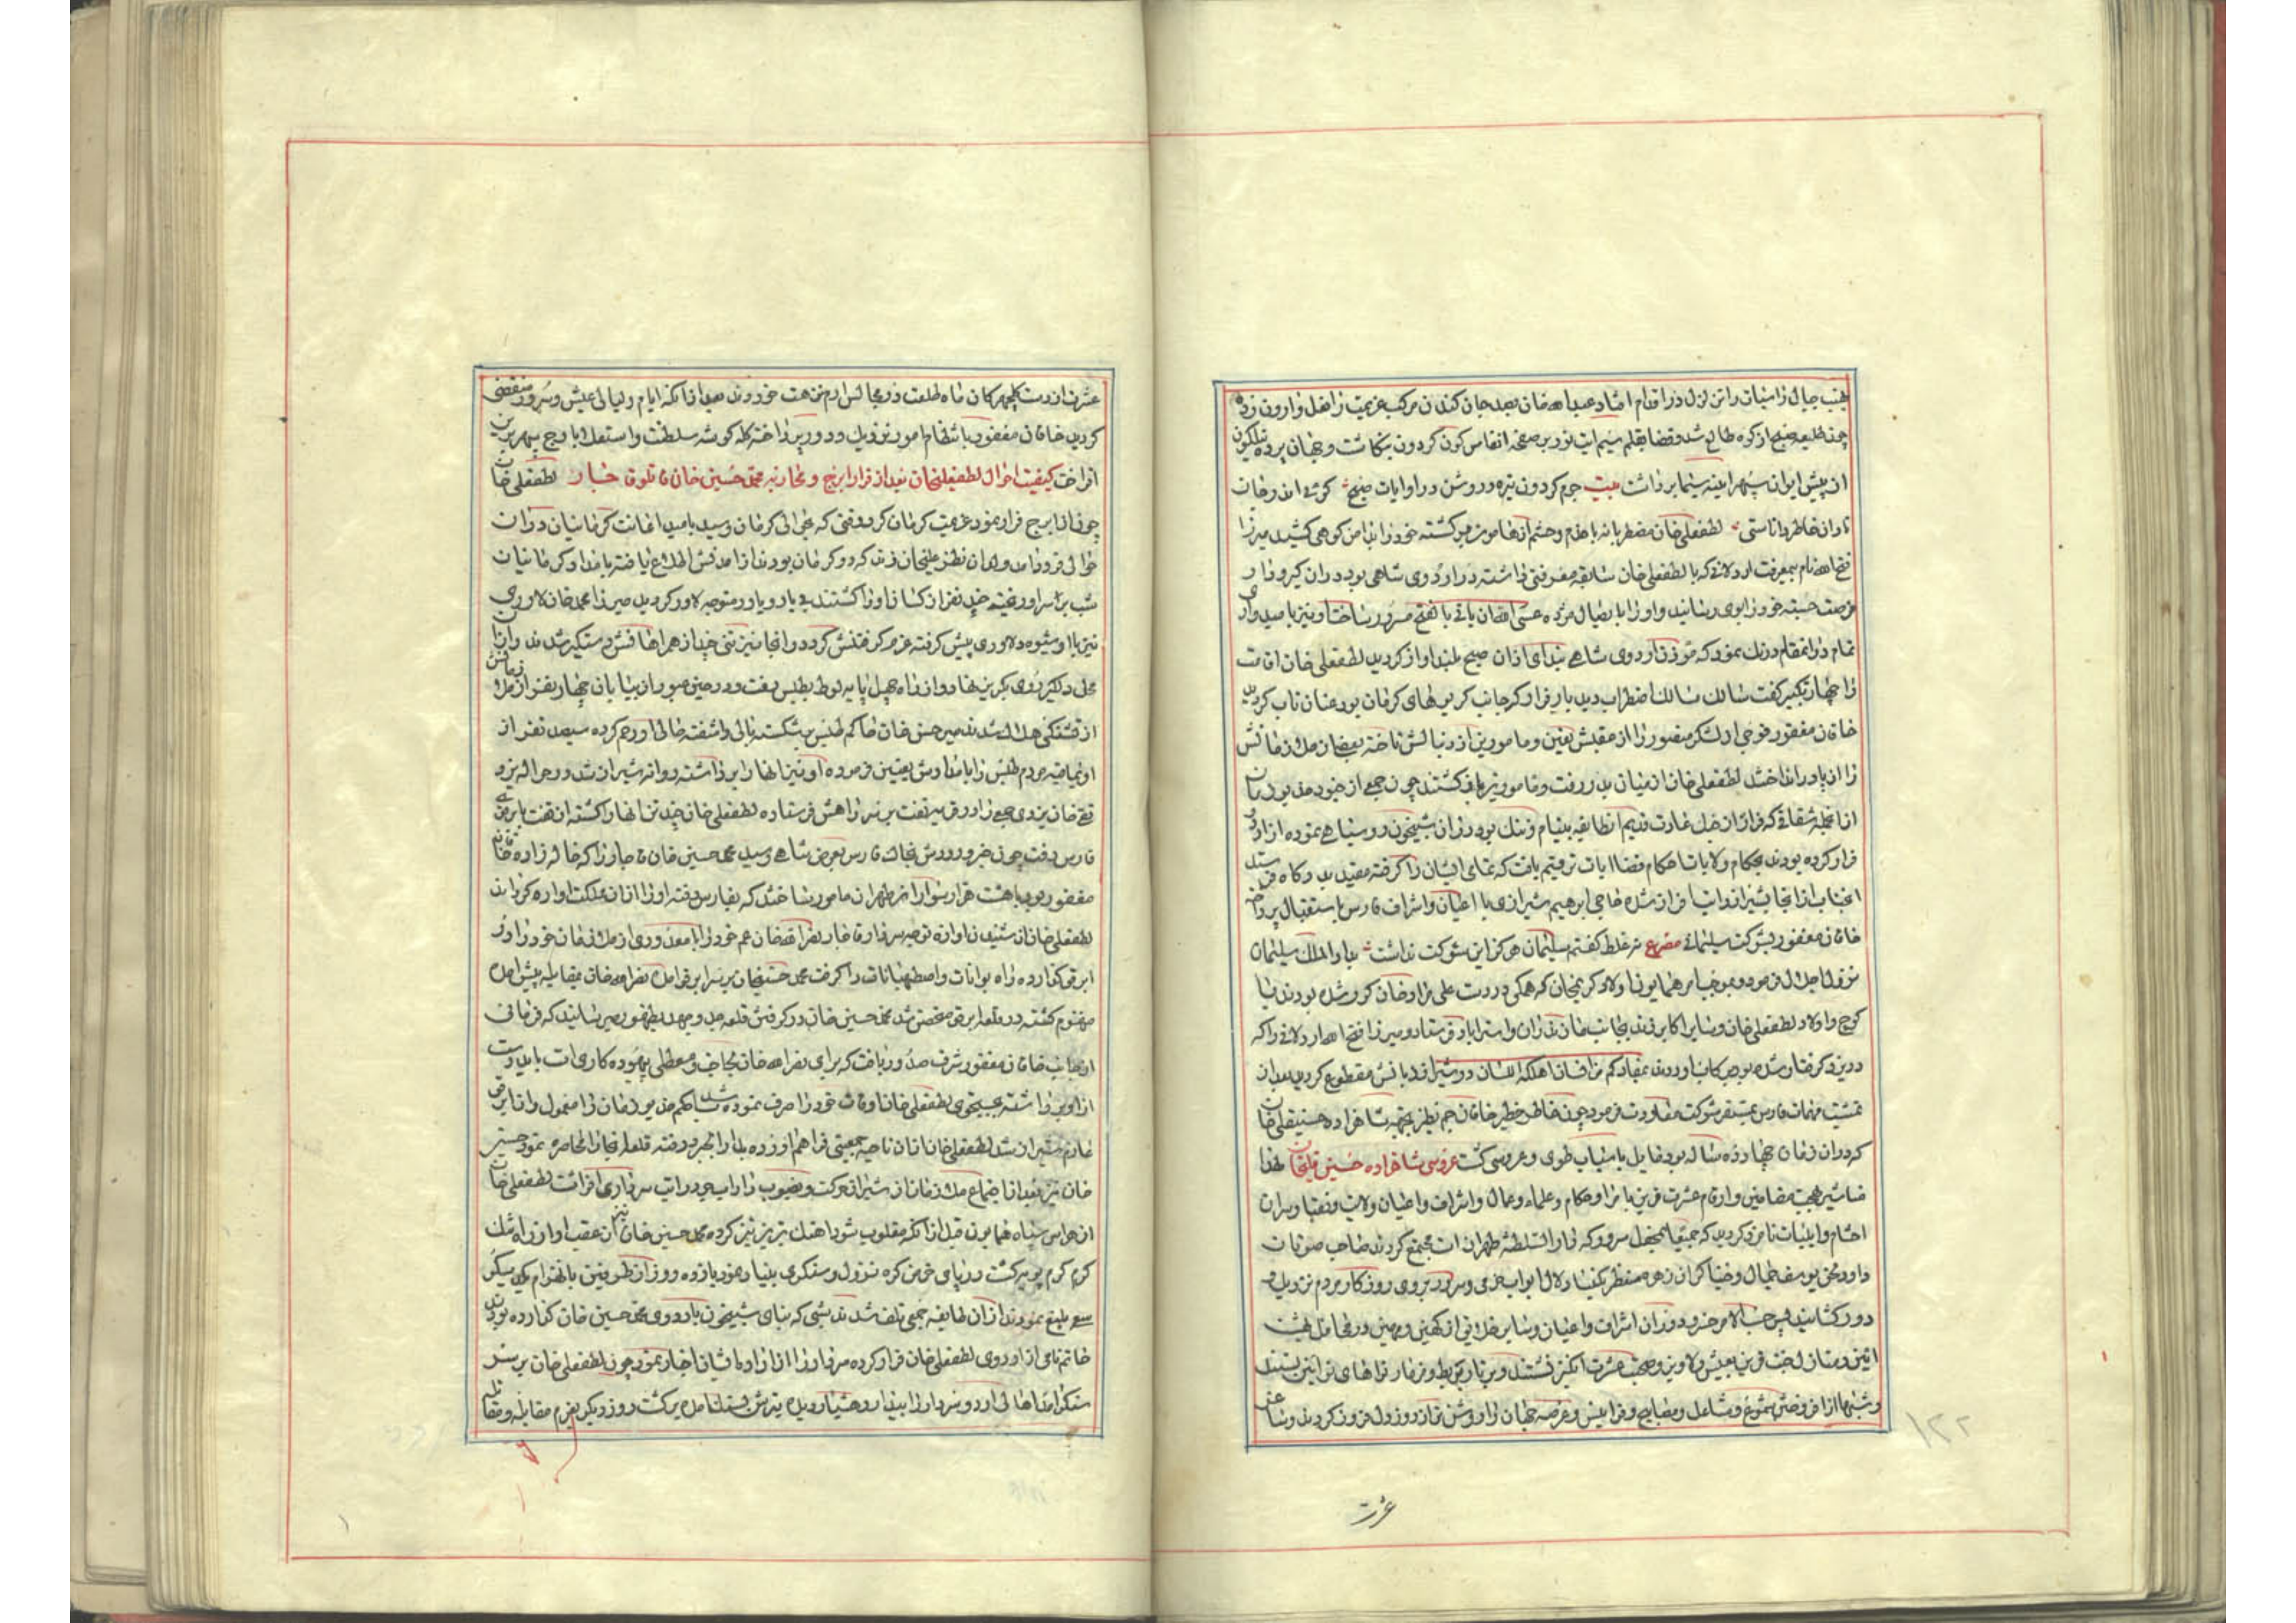 چند طلیعه صبح از کوه طالع شد و قضا بقلم سیم ایت نور بر صفحه انفاس کون کردون بنکاشت و جهان پرده نیلکون
از پیش ایوان سپهر اینه سیما برداشت بیت جرم کردون تیره و روشن در او ایات صبح کوئی اندر جان
نادان خاطر داناستی لطفعلی خان مضطربانه با خدم و حشم از هامون برکشته خود را بدامن کوهی کشید میرزا
فتح الله نام بمعرفت اردلانی که با لطفعلی خان سابقه معرفتی داشته در اردوی شاهی بود دران کیرودار
فرصت جسته خود را بوی رسانید و او را بایصال مژده عسی الله ان یاتی بالفتح مسرور ساخت او نیز بامیدواری
تمام در انمقام درنک نمود که مؤذن اردوی شاهی بندای اذان صبح بلند اواز کردید لطفعلی خان اقامت
را چهار تکبیر کفت سالک مسالک اضطراب دید بار فرار کرجانب کریوهای کرمان بود عنان تاب کردید
خاقان مغفور فوجی از لشکر منصور را از عقبش تعین و مامورین از دنبالش تاخته بعضی از ملازمانش
را از پا در انداختند لطفعلی خان از میان بدر رفت و مامورین باز کشتند چون جمعی از جنود مدبودن
از انجمله شقاقی که فراز از خیل غارت قدیم انطایفه بینام و ننک بود دران شبیخون روسیاهی نموده از اردو
فرار کرده بودند بحکام ولایات احکام قضا ایات ترقیم یافت که تمامی ایشان را کرفته مقید بدرکاه فرستند
انجناب از انجا بشیراز رایات افراز شده حاجی ابرهیم شیرازی با اعیان و اشراف فارس باستقبال پرداخته
خاقان مغفور بشوکت سلیمانی مصرع نه غلط کفتم سلیمان هرکز این شوکت نداشت بدار الملک سلیمان
نزول اجلال فرمود و بموجب امر همایون اولاد کریمخان که همکی در دست علی مراد خان کور شده بودند با
کوچ و اولاد لطفعلی خان و سایر اکابر زند بجانب مازندران و استراباد فرستاد و میرزا فتح الله اردلانی را که
در یزد کرفتار شده بموجب کار او بمفاد کم من انسان اهلکه اللسان در شیراز زبانش مقطوع کردید بعد از
تمشیت مهمات فارس بمستقر شوکت معاودت فرمود چون خاطر خطیر خاقان جم نظیر بجهة شاهزاده حسینقلی خان
که دران زمان چهارده ساله بود مایل باسباب طوی و عروسی کشت عروسی شاهزاده حسین قلیخان لهذا
مناشیر بهجت مضامین و ارقام عشرت قرین بامرا و حکام و علماء و عمال و اشراف و اعیان ولایت و نقبا و سران
احشام و ایلیات نامزد کردید که جمیعا بمحفل سرور که دار السلطنه طهران است مجتمع کردند صاحب صوتان
داودلحن یوسف جمال و خنیاکران زهره منظر یکتفا و لال ابواب خرمی و سرور بروی روزکار مردم نزدیک و
دور کشادند پس حسب الامر خسرو دوران اشراف و اعیان و سایر خلایق از کهین و مهین در محافل بهشت
ایین و منازل جنت قرین بعیش و لاوین و صحبت عشرت انکیز نشستند و بر تار بربط و مزمار نواهای نو ایین بستند
و شبها از افروختن شموع و مشاعل و مصابیح و فوانیس عرصه جهان را روشن تر از روز دل افروز کردند و ساغر
عشرت
عشرت از دست کلچهرکان ماه طلعت در مجالس ارم نزهت خوردند بعد از انکه ایام و لیالی عیش و سرور منقضی
کردید خاقان مغفور بانتظام امور نزدیک و دور پرداخته کله کوشه سلطنت و استقلال باوج سپهر برین
افراخت کیفیت احوال لطفعلیخان بعد از فرار ابرج و محاربه محمد حسین خان قاجار لطفعلی خان
چون از ابرج فرار نمود عزیمت کرمان کرد وقتی که بحوالی کرمان رسید بامید اعانت کرمانیان دران
حوالی فرود امد ولدان نظر علیخان زند که در کرمان بودند از امدنش اطلاع یافته بامداد کرمانیان
شب بر سر او ریخته چند نفر از کسان او را کشتند بی یار و یاور متوجه لاور کردید میرزا محمد خان لاوری
نیز با او شیوه دلاوری پیش کرفته عزم کرفتنش کرد در انجا نیز تنی چند از همراهانش دستکیر شدند و از ان
محل دلکیر روی بکریز نهاد و از راه چهل پایه لوط بطبس رفت و در حین عبور از بیابان چهار نفر از ملازمانش
از تشنکی هلاک شدند میر حسن خان حاکم طبس بر شکسته بالی و اشفته حالی او رحم کرده سیصد نفر از
اویماقیه مردم طبس را بامدادش تعین فرموده او نیز انها را برداشته روانه شیراز شد و در حوالی یزد
تقی خان یزدی جمعی را در قریه تفت بر سر راهش فرستاده لطفعلی خان چند تن انها را کشته از تفت بابرقو
فارس رفت چون خبر ورودش بخاک فارس بعرض شاهی رسید محمد حسین خان قاجار را که خالو زاده خاقان
مغفور بود با هشت هزار سوار از طهران مامور ساختند که بفارس رفته او را از ان مملکت اواره کرداند
لطفعلی خان از شنیدن اوازه توجه سردار قاجار نصر الله خان عم خود را با معدودی از ملازمان خود را در
ابرقو کذارده راه بوانات و اصطهبانات را کرفت محمد حسینخان بر سر ابرقو امده نصر الله خان بمقابله پیش امده
مهزوم کشته در قلعه ابرقو متحصن شد محمد حسین خان در کرفتن قلعه جد و جهد بظهور میرسانید که فرمانی
از جانب خاقان مغفور شرف صدور یافت که برای نصر الله خان بیجا و معطلی بیهوده کاری است باید دست
از او برداشته بجستجوی لطفعلی خان اوقات خود را صرف نموده باشد بحکم جدید فرمان را معمول و از ابرقو
عازم شیراز شد لطفعلی خان از ان ناحیه جمعیتی فراهم اورده بداراب کرد رفته قلعه انجا را محاصره نمود حسین
خان نیز بعد از اجتماع ملازمان از شیراز حرکت و بصوب داراب جرد رایت سرداری افراشت لطفعلی خان
از هراس سپاه همایون قبل از انکه مغلوب شود اهنک تبریز نیز کرده محمد حسین خان نیز از عقب او از راه شک
کرم کرم پویه کشت در پای خرمن کوه نزول و سنکری بنیاد نمود یازده روز از طرفین بانهزام یکدیکر
سعی بلیغ نمودند از ان طایفه جمعی تلف شدند شبی که بنای شبیخون باردوی محمد حسین خان کذارده بودند
خاتم نامی از اردوی لطفعلی خان فرار کرده سردار را از اراده ایشان اخبار نمود چون لطفعلی خان بر سر
سنکر امد اهالی اردو و سردار را بیدار و هشیار دیده تیرش بسنک امده برکشت روز دیکر بعزم مقابله و مقاتله